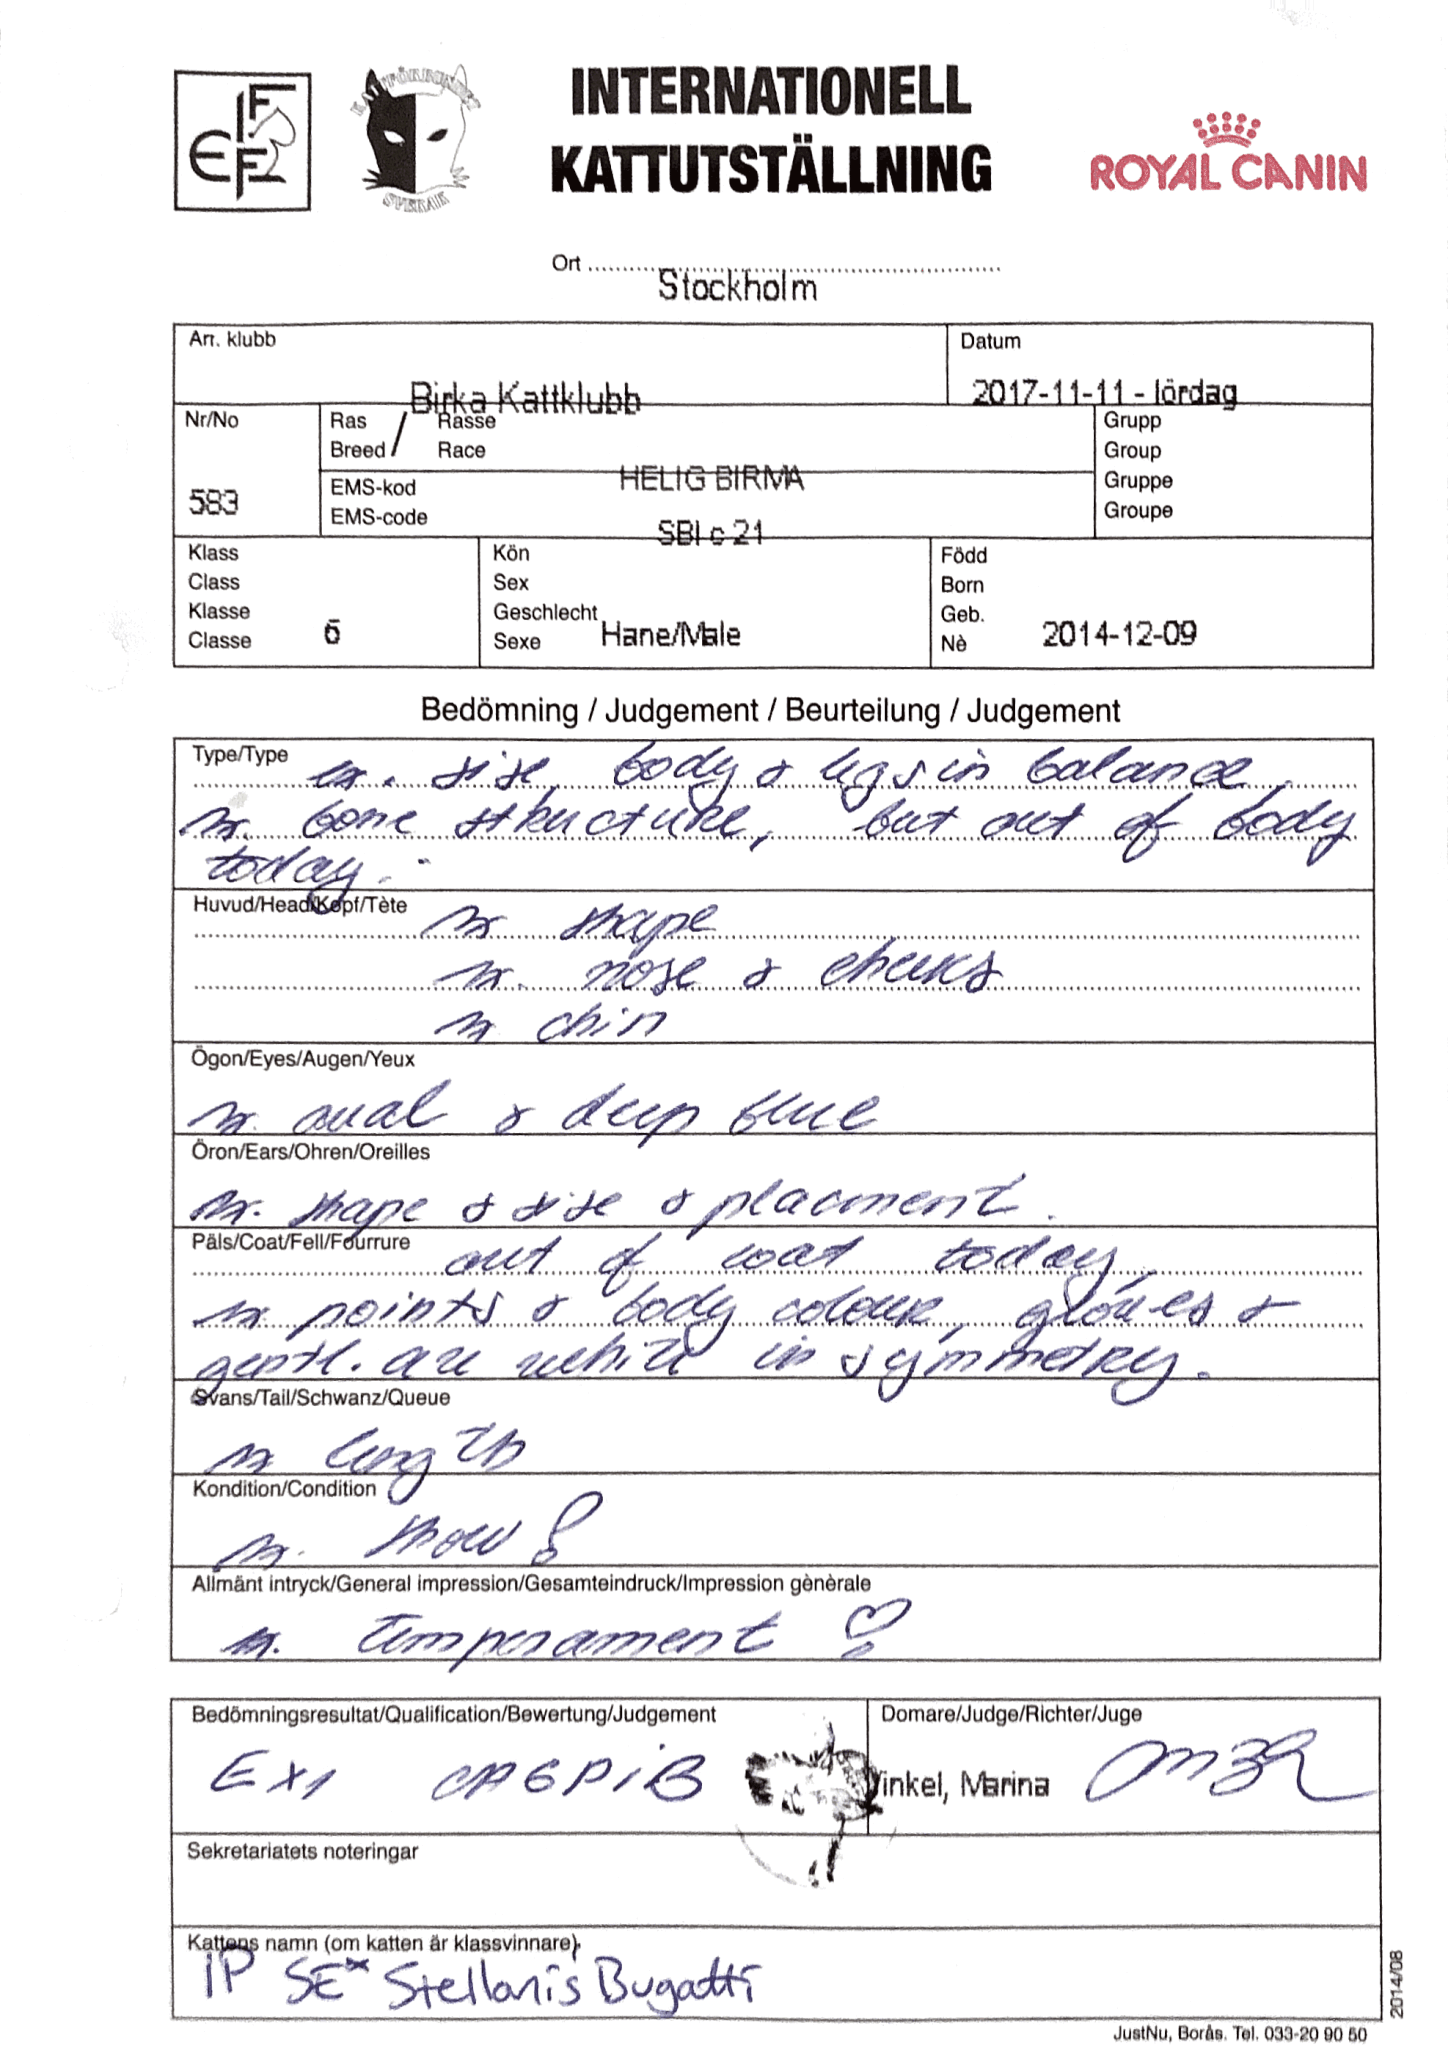 FIFe
KATTFÖRBUNDET
SVERAK
INTERNATIONELL
KATTUTSTÄLLNING
ROYAL CANIN
Ort
Stockholm
Arr. klubb
Birka Kattklubb
Datum
2017-11-11 - lördag
Nr/No
583
Ras / Rasse
Breed / Race
HELIG BIRMA
EMS-kod
EMS-code
SBI c 21
Grupp
Group
Gruppe
Groupe
Klass
Class
Klasse
Classe
6
Kön
Sex
Geschlecht
Sexe Hane/Male
Född
Born
Geb.
Nè 2014-12-09
Bedömning / Judgement / Beurteilung / Judgement
Type/Type
ex. sise, body & legs in balance.
ex. bone structure, but out of body
today.
Huvud/Head/Kopf/Tète
ex shape
ex. nose & cheeks
ex chin
Ögon/Eyes/Augen/Yeux
ex. oval & deep blue
Öron/Ears/Ohren/Oreilles
ex. shape & sise & placment.
Päls/Coat/Fell/Fourrure
out of coat today,
ex. points & body colour, gloves &
gentl. are white in symmetry.
Svans/Tail/Schwanz/Queue
ex length
Kondition/Condition
ex. show!
Allmänt intryck/General impression/Gesamteindruck/Impression gènèrale
ex. temperament
Bedömningsresultat/Qualification/Bewertung/Judgement
EX1 CAGPIB
Domare/Judge/Richter/Juge
inkel, Marina
Sekretariatets noteringar
Kattens namn (om katten är klassvinnare)
IP SE* Stellaris Bugatti
2014/08
JustNu, Borås. Tel. 033-20 90 50